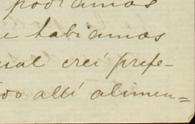 podríamos
habíamos
ual creí prefe-
do allí alimen=